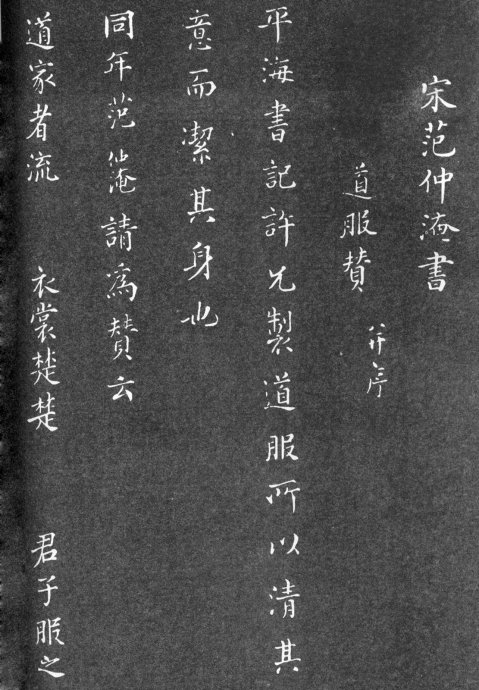 宋范仲淹書
道服赞 并序
平海書記許兄製道服所以清其
意而潔其身也
同年范仲淹請為賛云
道家者流 衣裳楚楚 君子服之